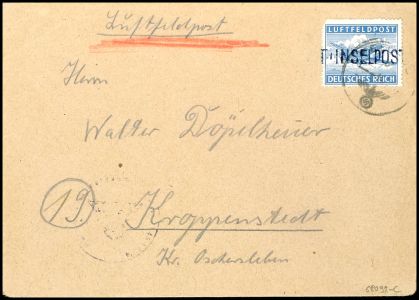 Luftfeldpost
LUFTFELDPOST
INSELPOST
DEUTSCHES REICH
Herrn
Walter Döpelheuer
19
Kroppenstedt
Kr. Oschersleben